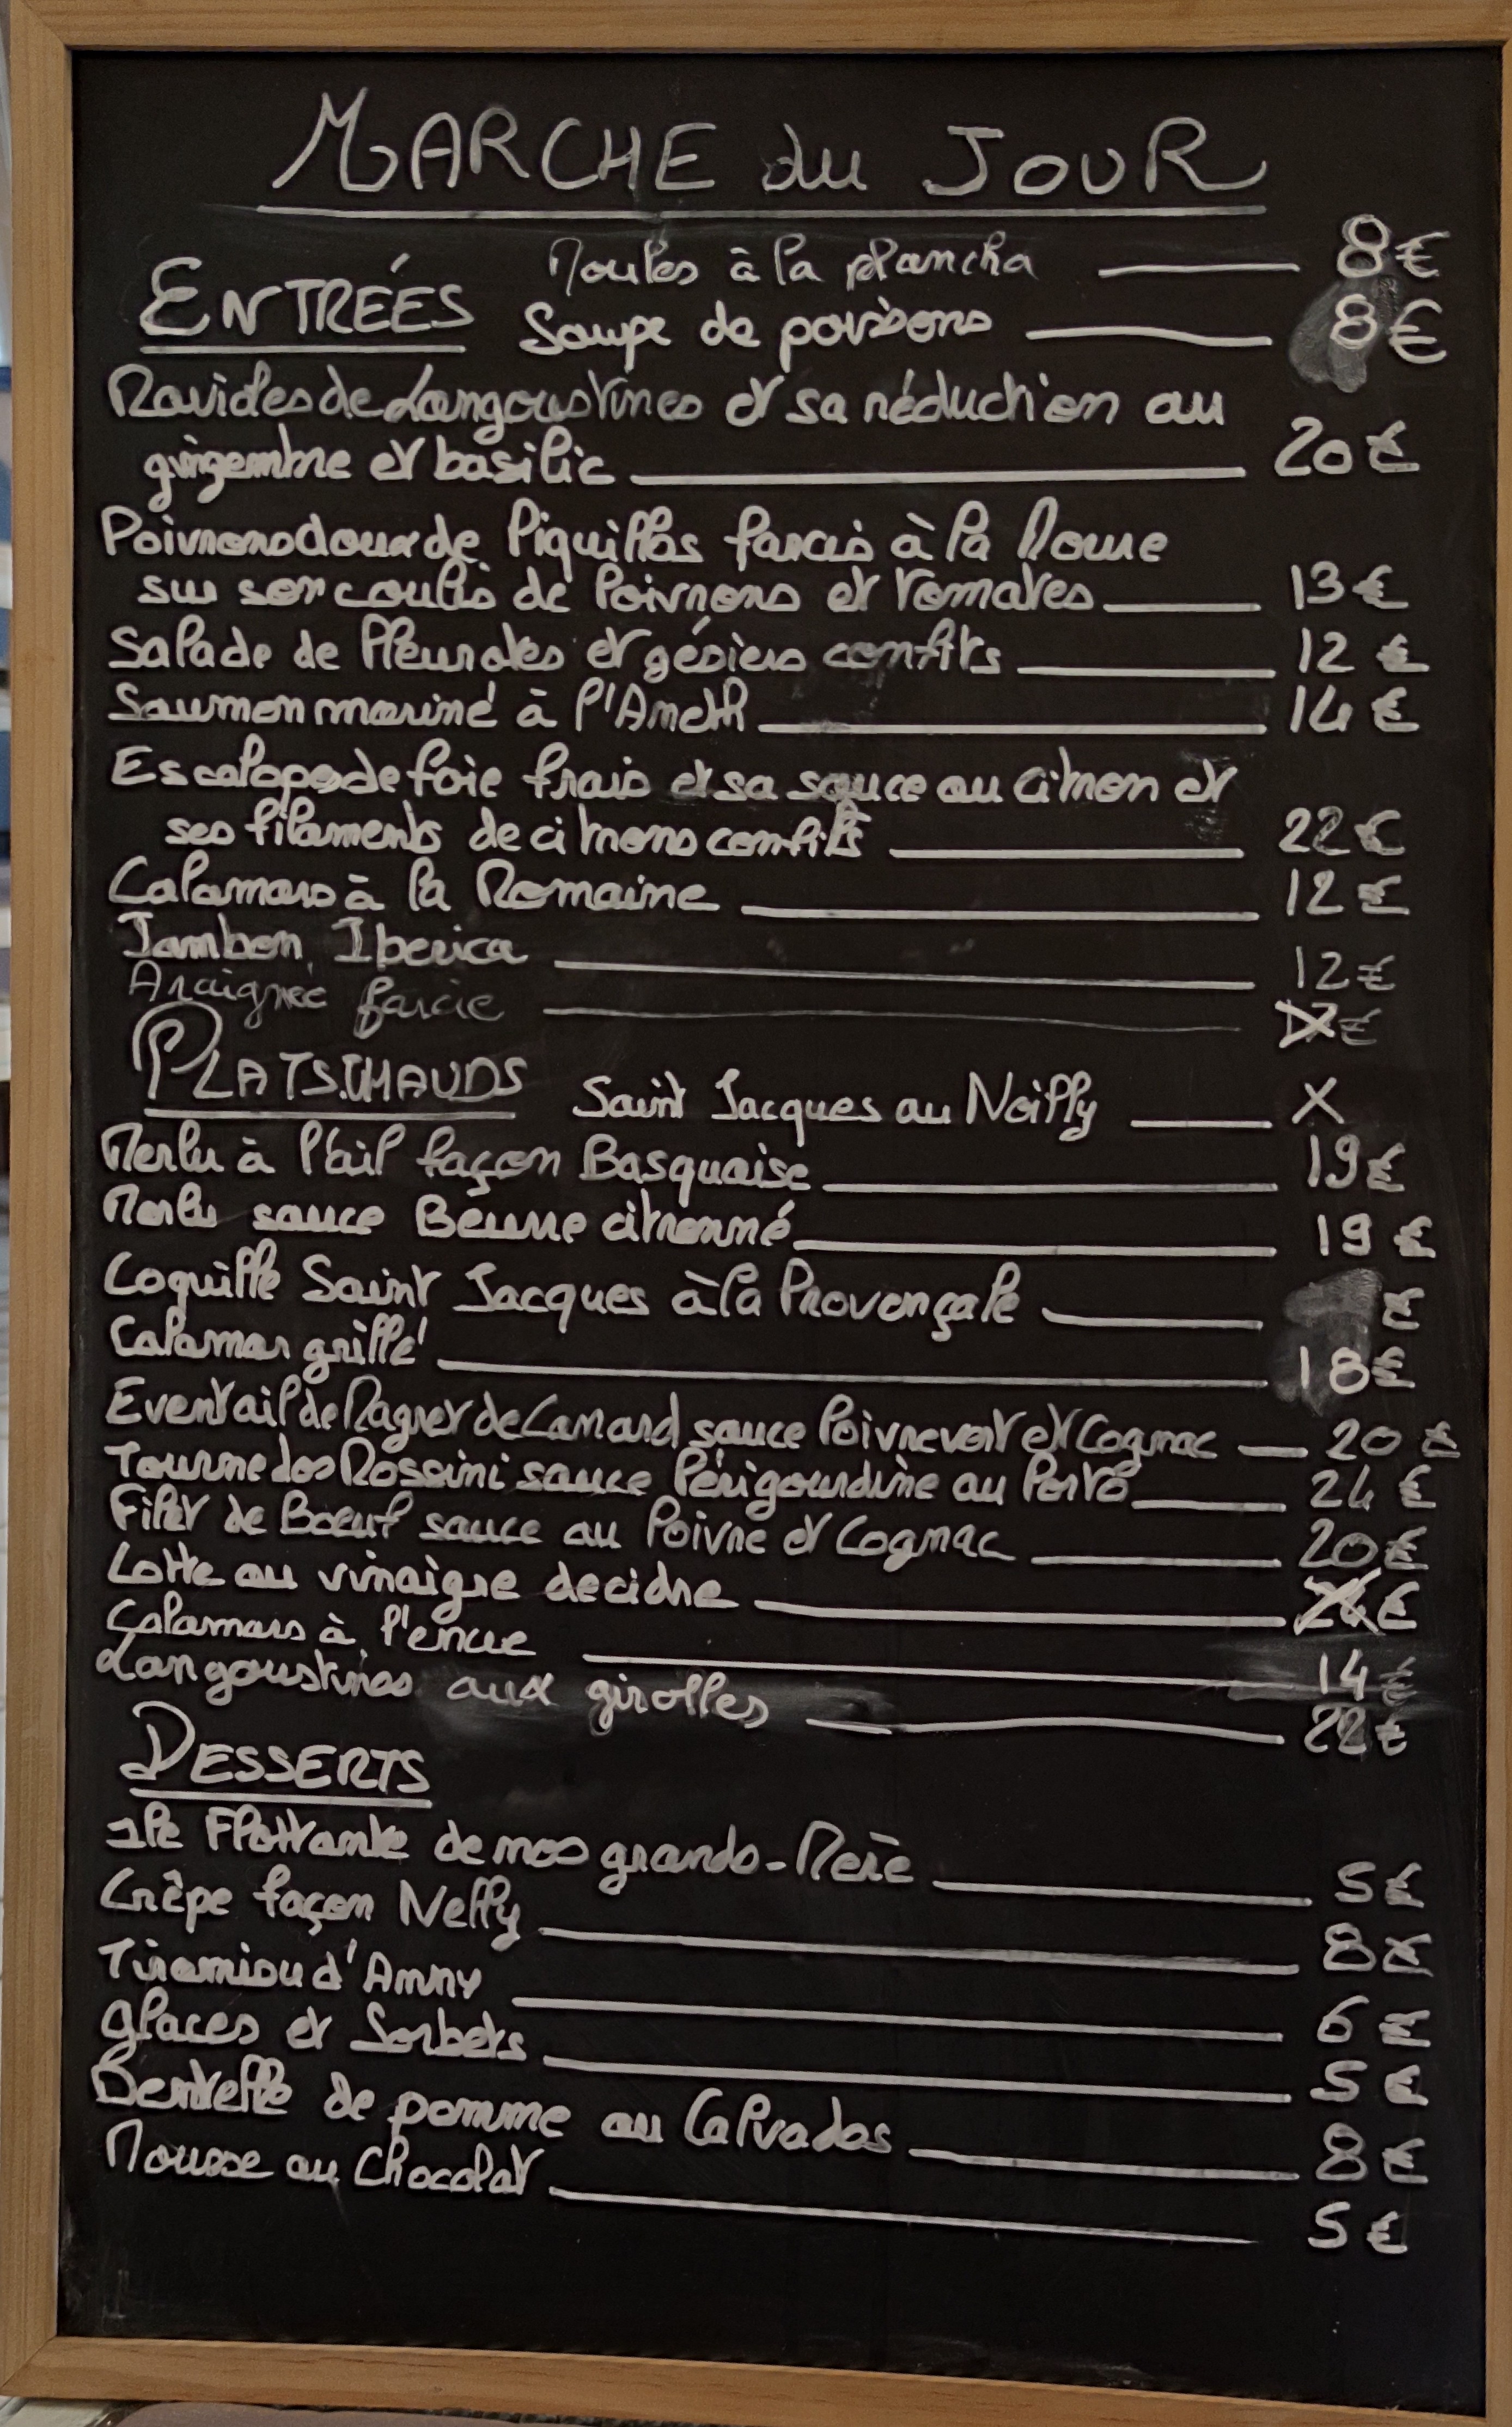 MARCHE du JOUR
ENTRÉES
Moules à la plancha 8€
Soupe de poissons 8€
Ravioles de Langoustines et sa réduction au
gingembre et basilic 20€
Poivrons doux de Piquillos farcis à la Morue
sur son coulis de Poivrons et Tomates 13€
Salade de Pleurotes et gésiers confits 12€
Saumon mariné à l'Aneth 14€
Escalope de foie frais et sa sauce au citron et
ses filaments de citrons confits 22€
Calamars à la Romaine 12€
Jambon Iberica 12€
Araignée farcie €
PLATS CHAUDS
Saint Jacques au Noilly X
Merlu à l'ail façon Basquaise 19€
Merlu sauce Beurre citronné 19€
Coquille Saint Jacques à la Provençale €
Calamar grillé 18€
Eventail de Magret de Canard sauce Poivre vert et Cognac 20€
Tournedos Rossini sauce Périgourdine au Porto 24€
Filet de Boeuf sauce au Poivre et Cognac 20€
Lotte au vinaigre de cidre €
Calamars à l'encre 14€
Langoustines aux girolles 22€
DESSERTS
Ile Flottante de mos grands-Mère 5€
Crêpe façon Nelly 8€
Tiramisu d'Anny 6€
Glaces et Sorbets 5€
Dentelle de pomme au Calvados 8€
Mousse au Chocolat 5€